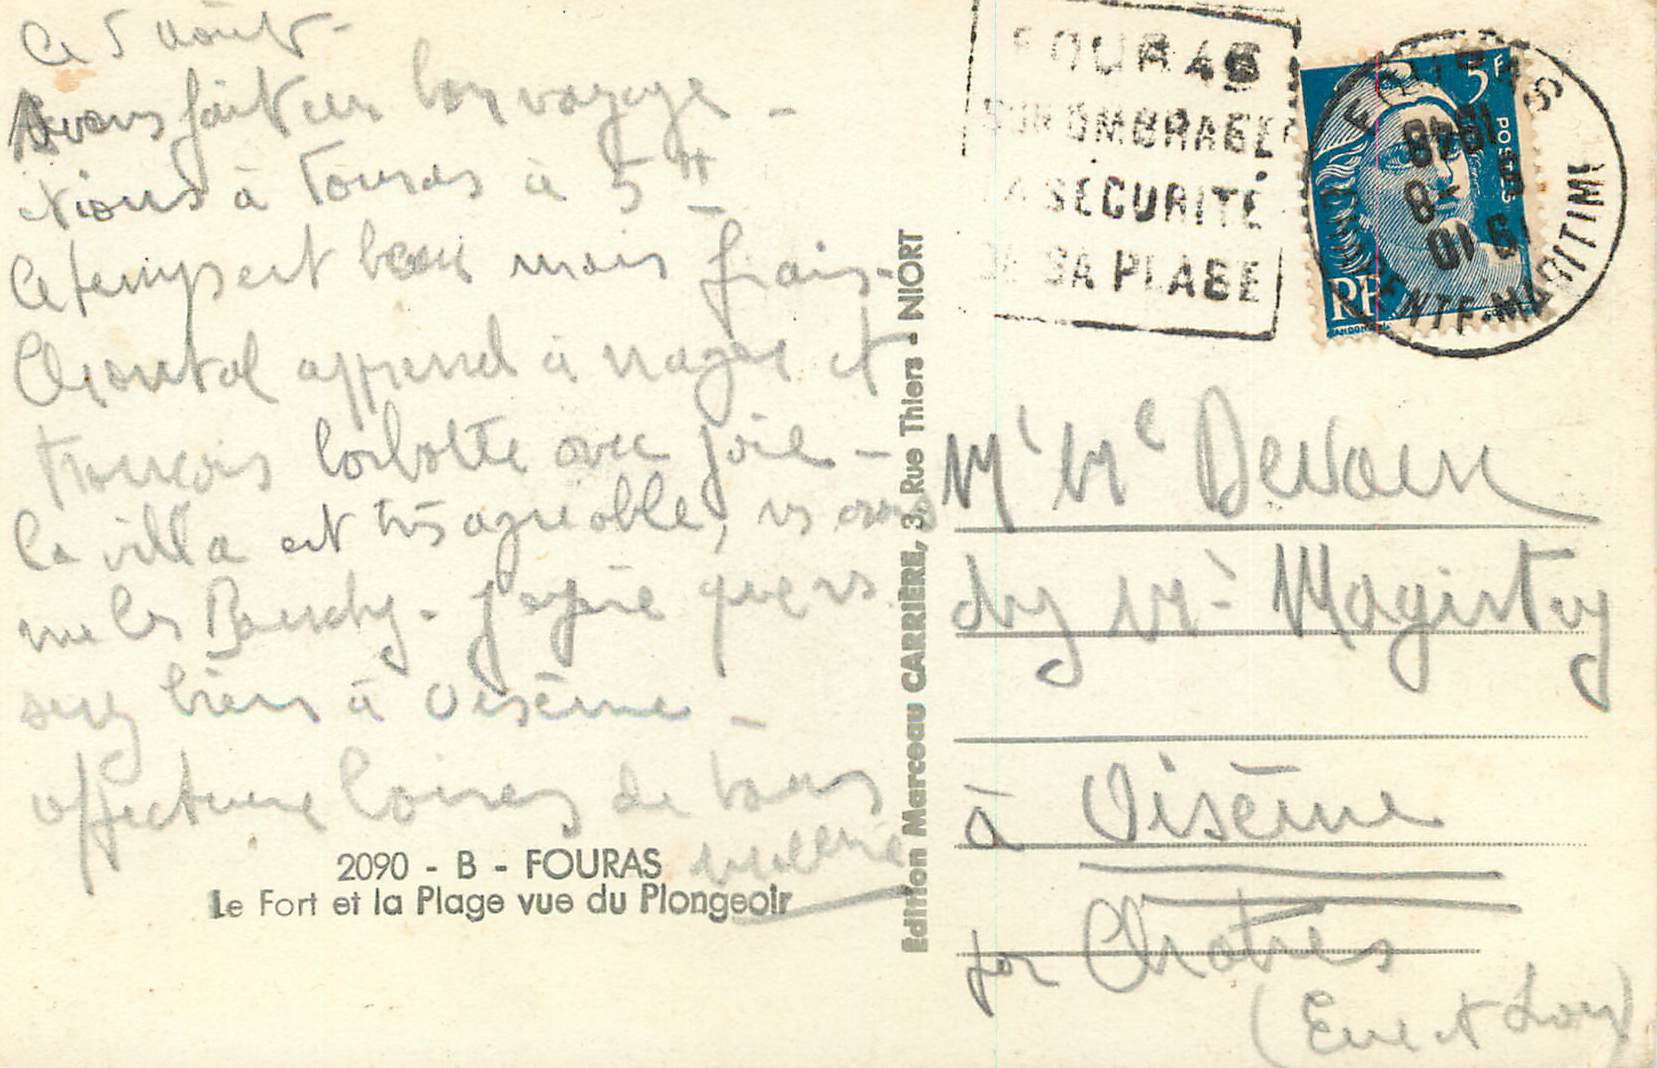 Ce 5 août -
Avons fait un bon voyage -
à Fouras à 5 H
le temps est beau mais frais.
Chantal apprend à nager et
François barbotte avec joie -
la villa est très agréable, ns avons
vu les - J'espère que vs
serez bien à Oisème -
affectueux baisers de tous
2090 - B - FOURAS
Le Fort et la Plage vue du Plongeoir
Édition Marceau CARRIÈRE, 3, Rue Thiers - NIORT
FOURAS
SON OMBRAGE
LA SÉCURITÉ
DE SA PLAGE
5F
POSTES
RF
FOURAS
CHARENTE-MARITIME
Mr Me Devaux
chez Mr Magistry
à Oisème
par Chartres
(Eure et Loir)